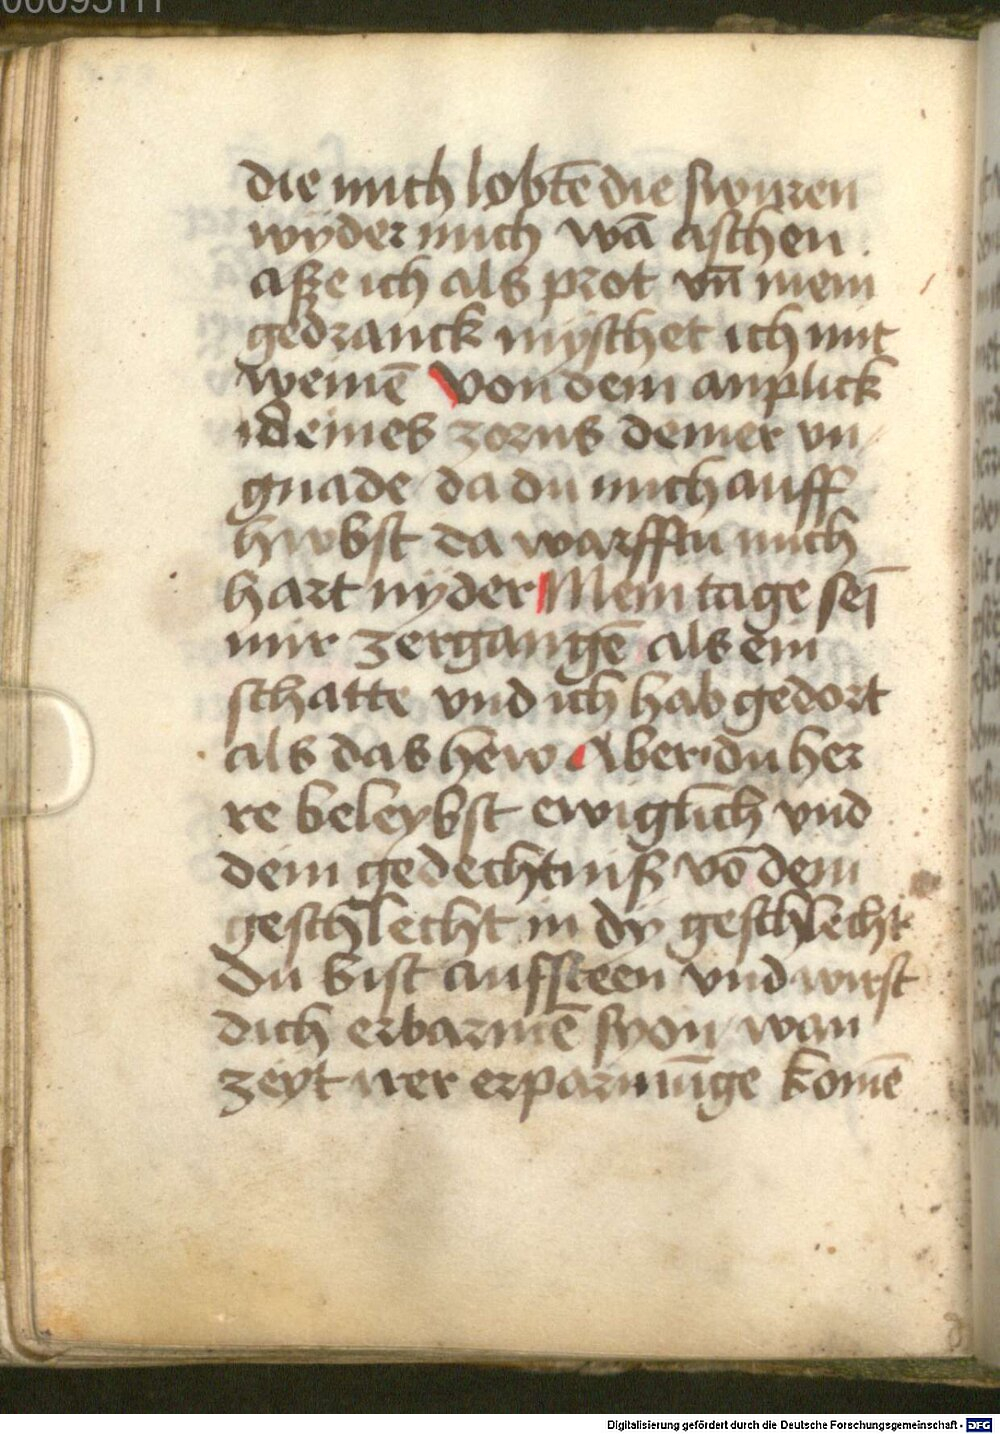 00095111
die mich lobtē die swuren
wyder mich wā aschen
aße ich als prot vn̄ mein
gedranck myschet ich mit
weinē von dem anplick
deines zorns deiner vn
gnade da du mich auff
hwbst da warfftu mich
hart nyder Mein tage sei̅
mir zergangē als ein
schatte vnd ich hab gedort
als das hew Aber du her
re beleybst ewiglich vnd
dein gedechtniß vō dem
geschlecht in dy geschlecht
Du bist aufsteen vnd wirst
dich erbarmē syon wan
zeyt irer erparmūge komē
Digitalisierung gefördert durch die Deutsche Forschungsgemeinschaft - DFG